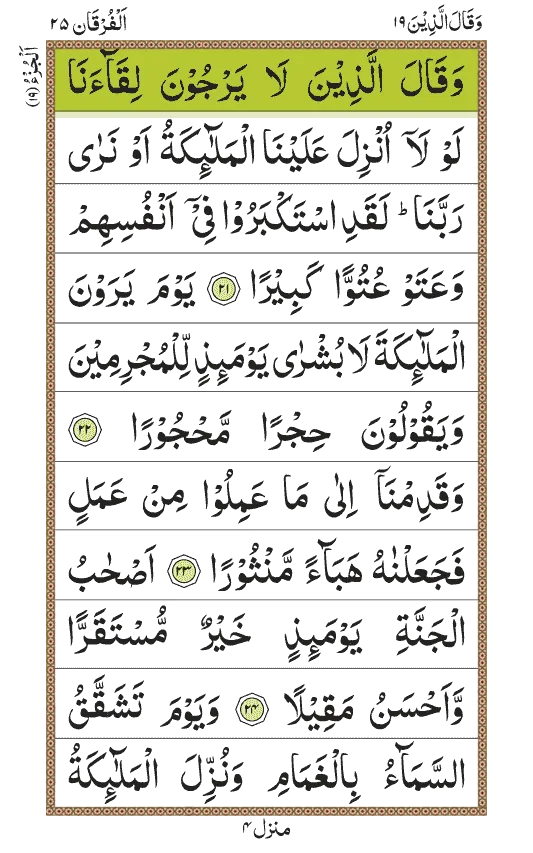 وَقَالَ الَّذِيْنَ ١٩
اَلْفُرْقَان ٢٥
اَلْجُزْءُ (١٩)
وَقَالَ الَّذِيْنَ لَا يَرْجُوْنَ لِقَآءَنَا
لَوْ لَاۤ اُنْزِلَ عَلَيْنَا الْمَلٰٓئِكَةُ اَوْ نَرٰى
رَبَّنَا ؕ لَقَدِ اسْتَكْبَرُوْا فِيْۤ اَنْفُسِهِمْ
وَعَتَوْ عُتُوًّا كَبِيْرًا ٢١ يَوْمَ يَرَوْنَ
الْمَلٰٓئِكَةَ لَا بُشْرٰى يَوْمَئِذٍ لِّلْمُجْرِمِيْنَ
وَيَقُوْلُوْنَ حِجْرًا مَّحْجُوْرًا ٢٢
وَقَدِمْنَاۤ اِلٰى مَا عَمِلُوْا مِنْ عَمَلٍ
فَجَعَلْنٰهُ هَبَآءً مَّنْثُوْرًا ٢٣ اَصْحٰبُ
الْجَنَّةِ يَوْمَئِذٍ خَيْرٌ مُّسْتَقَرًّا
وَّاَحْسَنُ مَقِيْلًا ٢٤ وَيَوْمَ تَشَقَّقُ
السَّمَآءُ بِالْغَمَامِ وَنُزِّلَ الْمَلٰٓئِكَةُ
منزل ٤